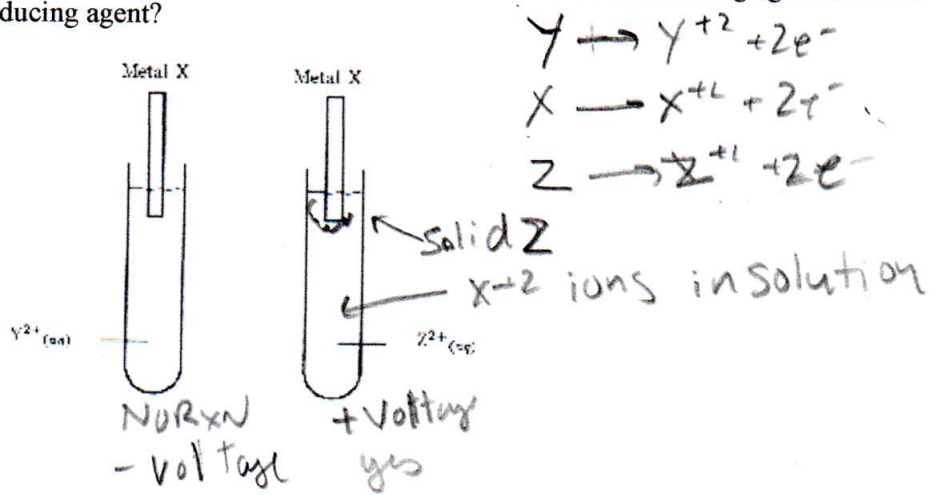 ducing agent?
Y → Y+2 + 2e-
Metal X
Metal X
X — X+2 + 2e-
Z → Z+2 + 2e-
Solid Z
X+2 ions in solution
Y2+(aq)
Z2+(aq)
NORXN
+ Voltage
- voltage
yes